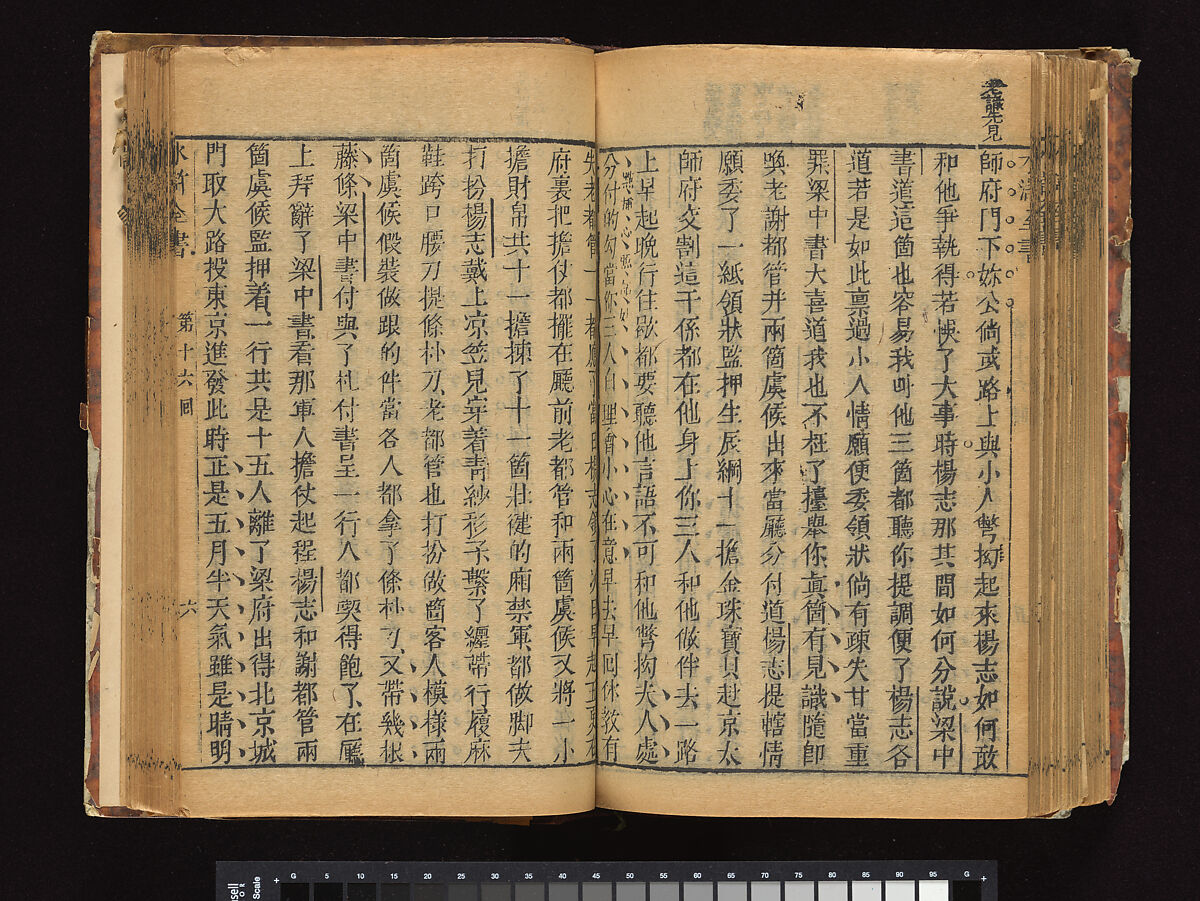 老識先見
師府門下妳公倘或路上與小人彆拗起來楊志如何敢
和他爭執得若悞了大事時楊志那其間如何分說梁中
書道這箇也容易我叫他三箇都聽你提調便了楊志答
道若是如此禀過小人情願便委領狀倘有疎失甘當重
罪梁中書大喜道我也不枉了擡舉你真箇有見識隨卽
喚老謝都管并兩箇虞候出來當廳分付道楊志提轄情
願委了一紙領狀監押生辰綱十一擔金珠寶貝赴京太
師府交劄這干係都在他身上你三人和他做伴去一路
上早起晚行住歇都要聽他言語不可和他彆拗夫人處
分付的勾當你三人自理會小心在意早去早回休教有
失老都管一一都應了當日楊志領
府裏把擔仗都擺在廳前老都管和兩箇虞候又將一小
擔財帛共十一擔揀了十一箇壯健的廂禁軍都做脚夫
打扮楊志戴上凉笠兒穿着青紗衫子繫了纏帶行履麻
鞋跨口腰刀提條朴刀老都管也打扮做箇客人模樣兩
箇虞候假裝做跟的伴當各人都拿了條朴刀又帶幾根
藤條梁中書付與了札付書呈一行人都喫得飽了在廳
上拜辭了梁中書看那軍人擔仗起程楊志和謝都管兩
箇虞候監押着一行共是十五人離了梁府出得北京城
門取大路投東京進發此時正是五月半天氣雖是晴明
水滸全書 第十六回 六